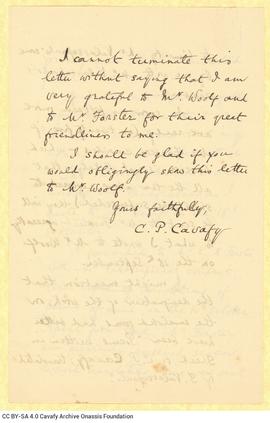 I cannot terminate this
letter without saying that I am
very grateful to Mr. Woolf and
to Mr. Forster for their great
friendliness to me.
I should be glad if you
would obligingly show this letter
to Mr. Woolf.
Yours faithfully,
C. P. Cavafy
CC BY-SA 4.0 Cavafy Archive Onassis Foundation